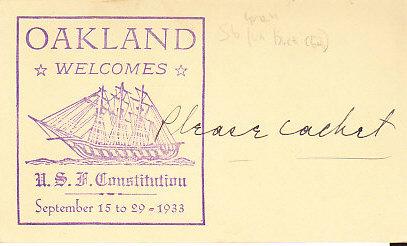 OAKLAND
☆ WELCOMES ☆
U. S. F. Constitution
September 15 to 29 - 1933
Please cachet